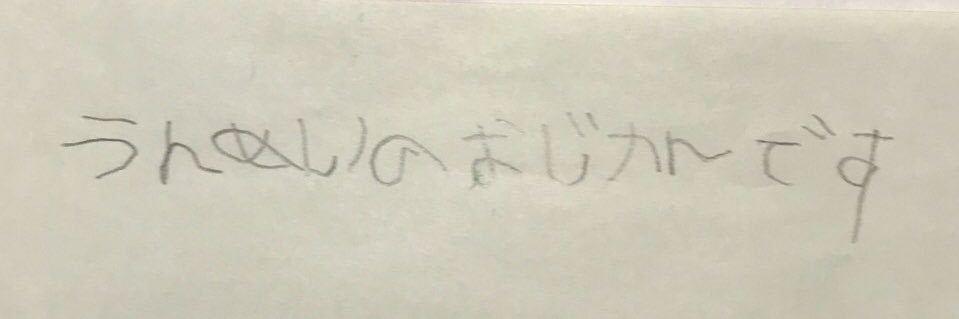 うんめいのおじかんです